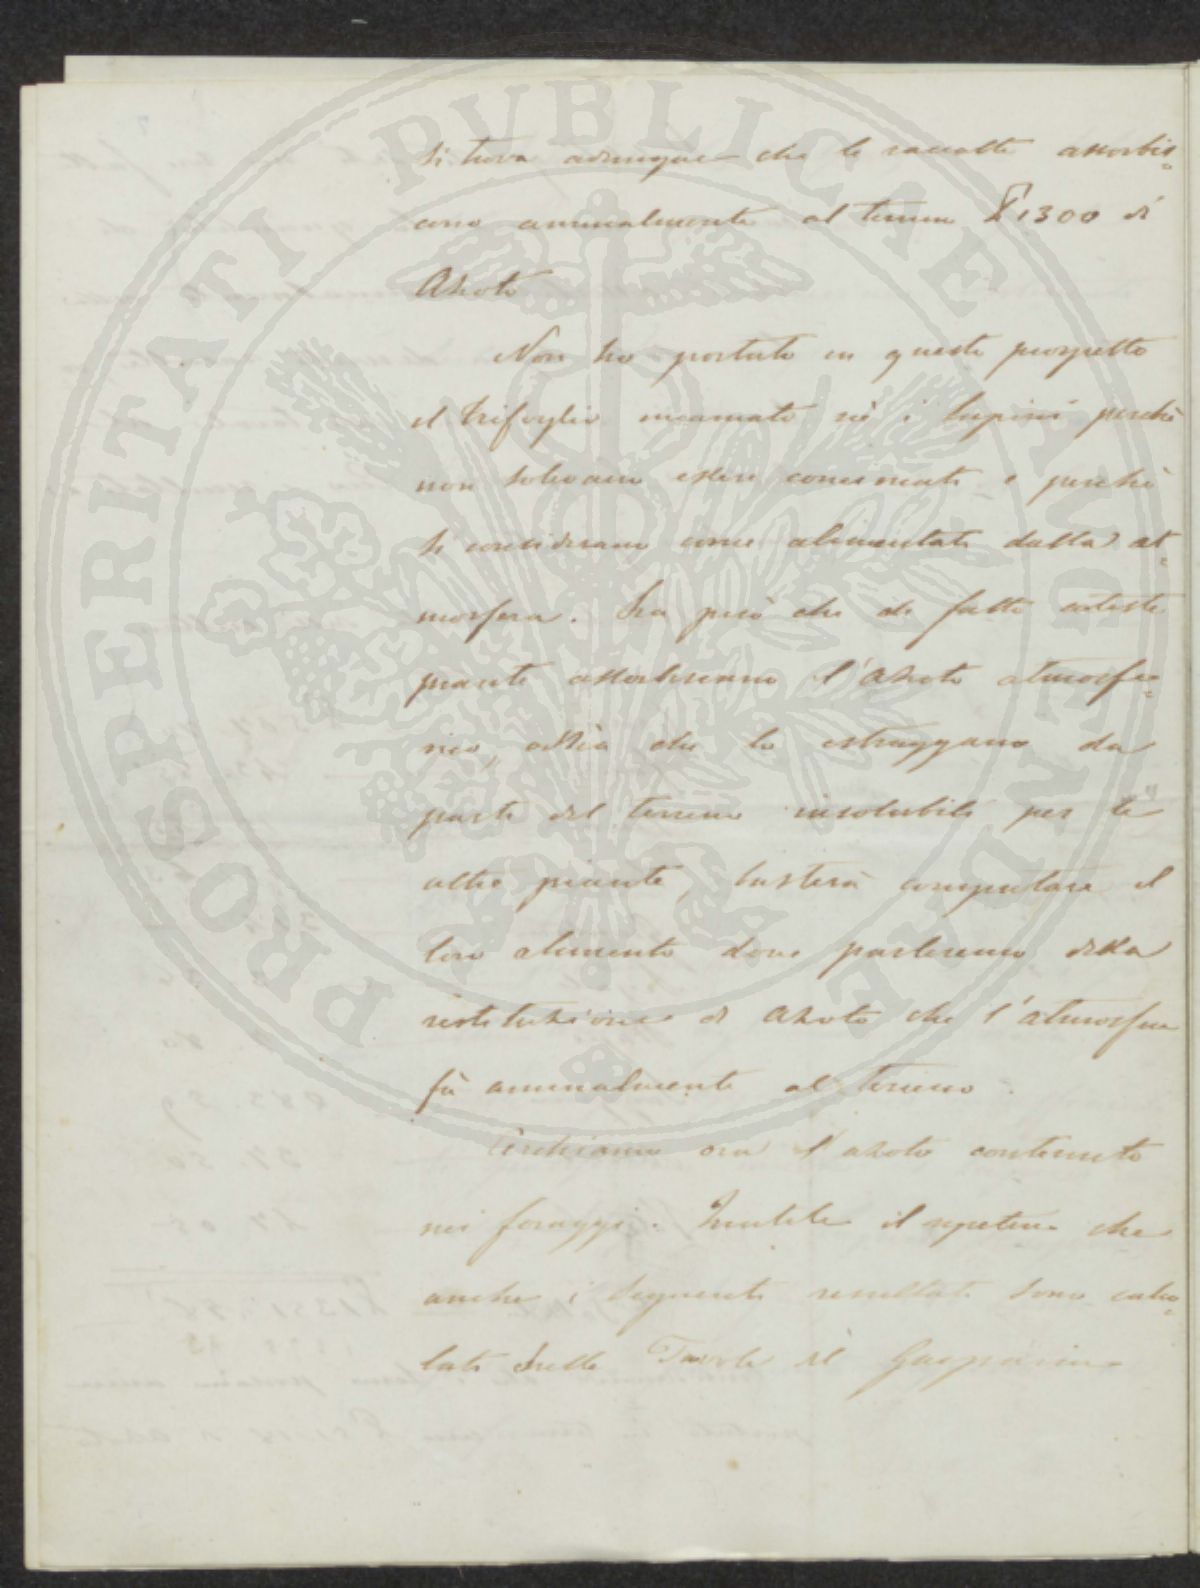 Si trova adunque che le raccolte assorbis=
cono annualmente al terreno £ 1300 di
Azoto
Non ho portato in questo prospetto
il trifoglio incarnato nè i lupini perchè
non solevano essere concimati e perchè
si considerano come alimentati dalla at=
mosfera. Sia però che di fatto coteste
piante assorbiranno l'Azoto atmosfe=
rico, ossia che lo estraggano da
parti del terreno insolubili per le
altre piante, basterà computare il
loro alimento dove parleremo della
restituzione di Azoto che l'atmosfera
fà annualmente al terreno.
Cerchiamo ora l'azoto contenuto
nei foraggi. Inutile il repetere che
anche i seguenti resultati sono calco=
lati sulle Tavole di Gasparin
PUBLICAE PROSPERITATI AUGENDAE